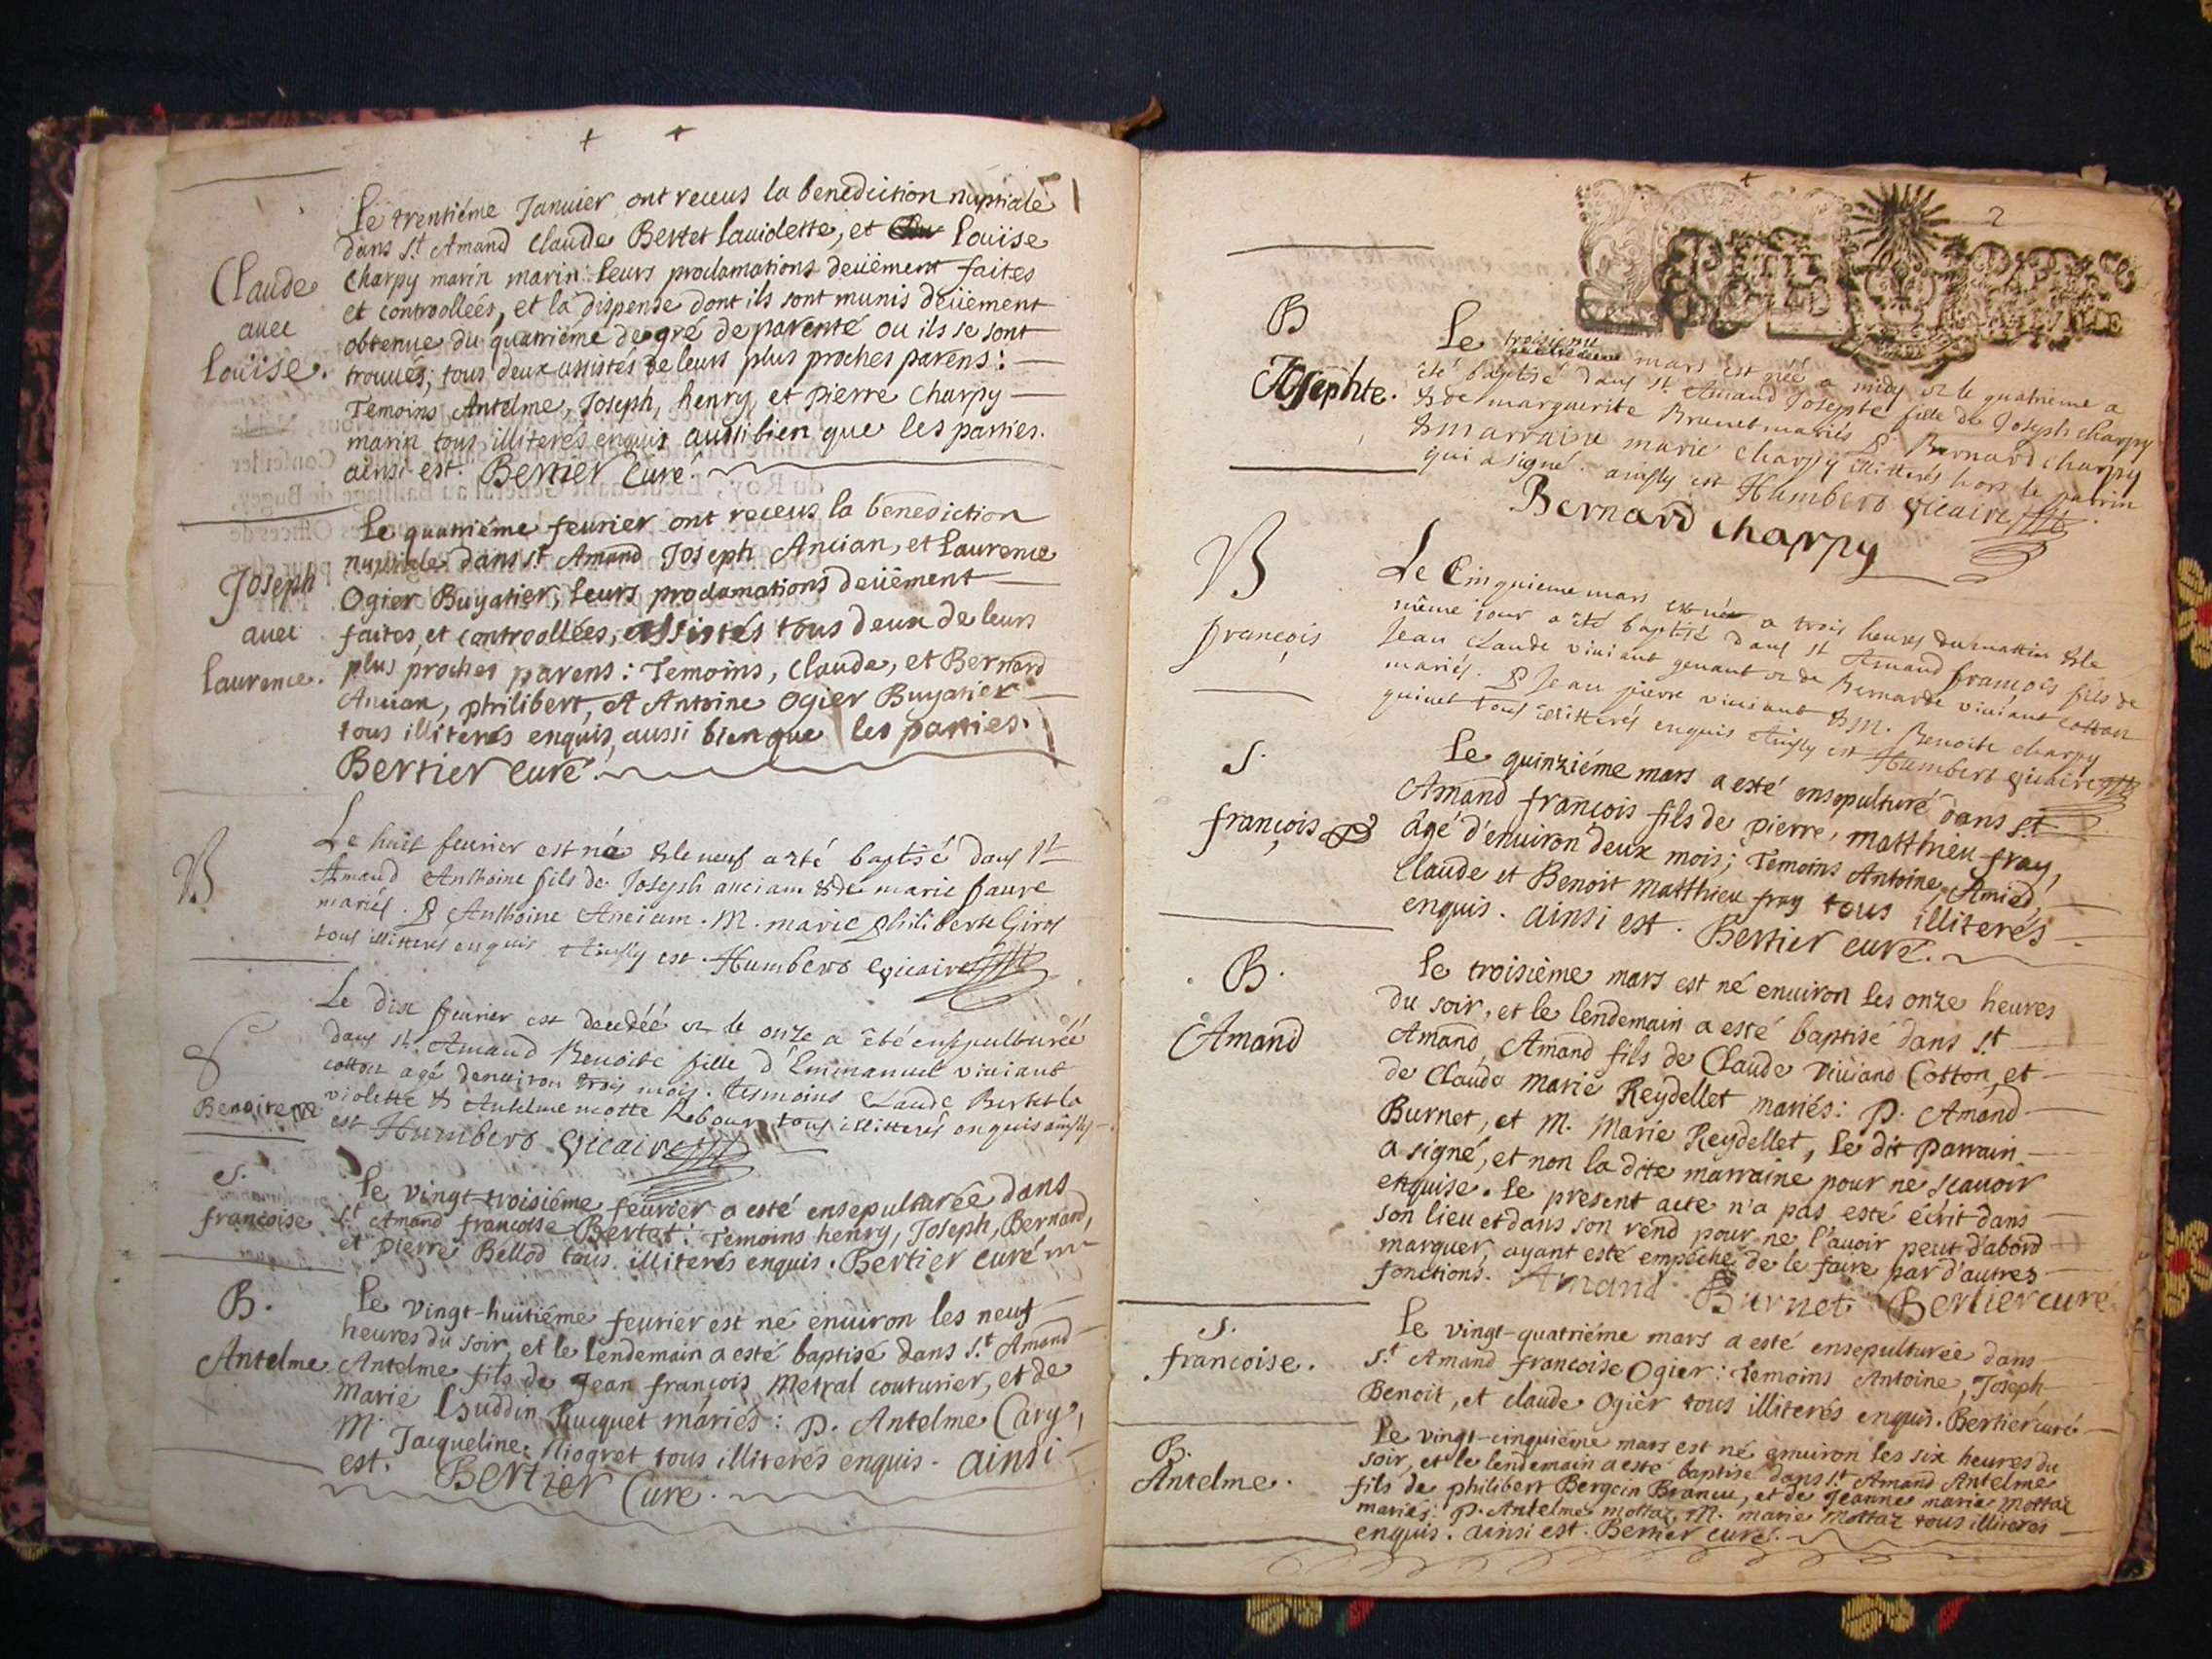 Claude
avec
Louïse.
Le trentiéme Januier ont receus la benediction nuptiale
dans St. Amand Claude Bertet lauiolette, et Louïse
Charpy marin marin: leurs proclamations deüement faites
et controollées, et la dispense dont ils sont munis deüement
obtenue du quatriéme degré de parenté ou ils se sont
trouués; tous deux assistés de leurs plus proches parens:
Temoins Antelme, Joseph, henry, et pierre Charpy
marin tous illiterés enquis aussi bien que les parties.
ainsi est. Bertier Curé.
Joseph
auec
laurence.
Le quatriéme feurier ont receus la benediction
nuptiale dans St. Amand Joseph Ancian, et Laurence
Ogier Buyatier, leurs proclamations deüement
faites, et controollées, assistés tous deux de leurs
plus proches parens: Temoins, Claude, et Bernard
Ancian, philibert, et Antoine Ogier Buyatier
tous illiterés enquis, aussi bien que les parties.
Bertier curé.
B
Le huit feurier est né & le neuf a été baptisé dans St
Amand Anthoine fils de Joseph anciam & de marie faure
mariés. P Anthoine Anciam. M. marie philiberte Girod
tous illitterés enquis Ainsy est. Humbert vicaire
S
Benoite
Le dix feurier est decedéé & le onze a été ensepulturéé
dans St. Amand Benoite fille d'Emmanuel viuiant
cotton agé denuiron trois mois. tesmoins Claude Bertet la
violette & Antelme motte Rebour tous illitterés enquis ainsy
est Humbert vicaire
S.
francoise
Le vingt-troisiéme feurier a esté ensepulturée dans
St. Amand francoise Bertet: Temoins henry, Joseph, Bernard,
et pierre Bellod tous illiterés enquis. Bertier curé
B.
Antelme
Le vingt-huitiéme feurier est né enuiron les neuf
heures du soir, et le lendemain a esté baptisé dans St. Amand
Antelme fils de Jean françois Metral couturier, et de
Marie Isuddin hucquet mariés: P. Antelme Cary,
M. Jacqueline Niogret tous illiterés enquis. ainsi
est. Bertier Curé.
2
B
Josephte.
Le troisieme mars est née a midy & le quatrieme a
été baptisé dans St. Amand Josephte fille de Joseph charpy
& de marguerite Brunet mariés P. Bernard charpy
& marraine marie charpy illitterés hors le parrin
qui a signé. ainsy est Humbert vicaire
Bernard charpy
B
françois
Le Cinquieme mars est né a trois heures du mattin & le
même jour a été baptisé dans St Amand françois fils de
Jean Claude viuiant genant & de Bernarde viuiant cottan
mariés. P Jean pierre viuiant & M. Benoite charpy
quinet tous illitterés enquis Ainsy est Humbert vicaire
S.
françois
Le quinziéme mars a esté ensepulturé dans St
Amand françois fils de pierre, matthieu fray,
âgé d'enuiron deux mois; Temoins Antoine, Amied,
Claude et Benoit Matthieu fray tous illiterés
enquis. ainsi est. Bertier curé.
B.
Amand
Le troisième mars est né enuiron les onze heures
du soir, et le lendemain a esté baptisé dans St.
Amand, Amand fils de Claude Viuiand Cotton, et
de Claude Marie Reydellet mariés: P. Amand
Burnet, et M. Marie Reydellet, Le dit parrain
a signé, et non la dite marraine pour ne scauoir
enquise. Le present acte n'a pas esté écrit dans
son lieu et dans son rend pour ne l'auoir peut d'abord
marquer, ayant esté empéché de le faire par d'autres
fonctions. Amand Burnet Bertier curé
S.
francoise.
Le vingt-quatriéme mars a esté ensepulturée dans
St. Amand francoise Ogier: temoins Antoine, Joseph
Benoit, et claude Ogier tous illiterés enquis. Bertier curé
B.
Antelme.
Le vingt-cinquiéme mars est né enuiron les six heures du
soir, et le lendemain a esté baptisé dans St. Amand Antelme
fils de philibert Bergoin Brancu, et de Jeanne marie Mottaz
mariés: P. Antelme mottaz, M. marie Mottaz tous illiterés
enquis. ainsi est. Bertier curé.